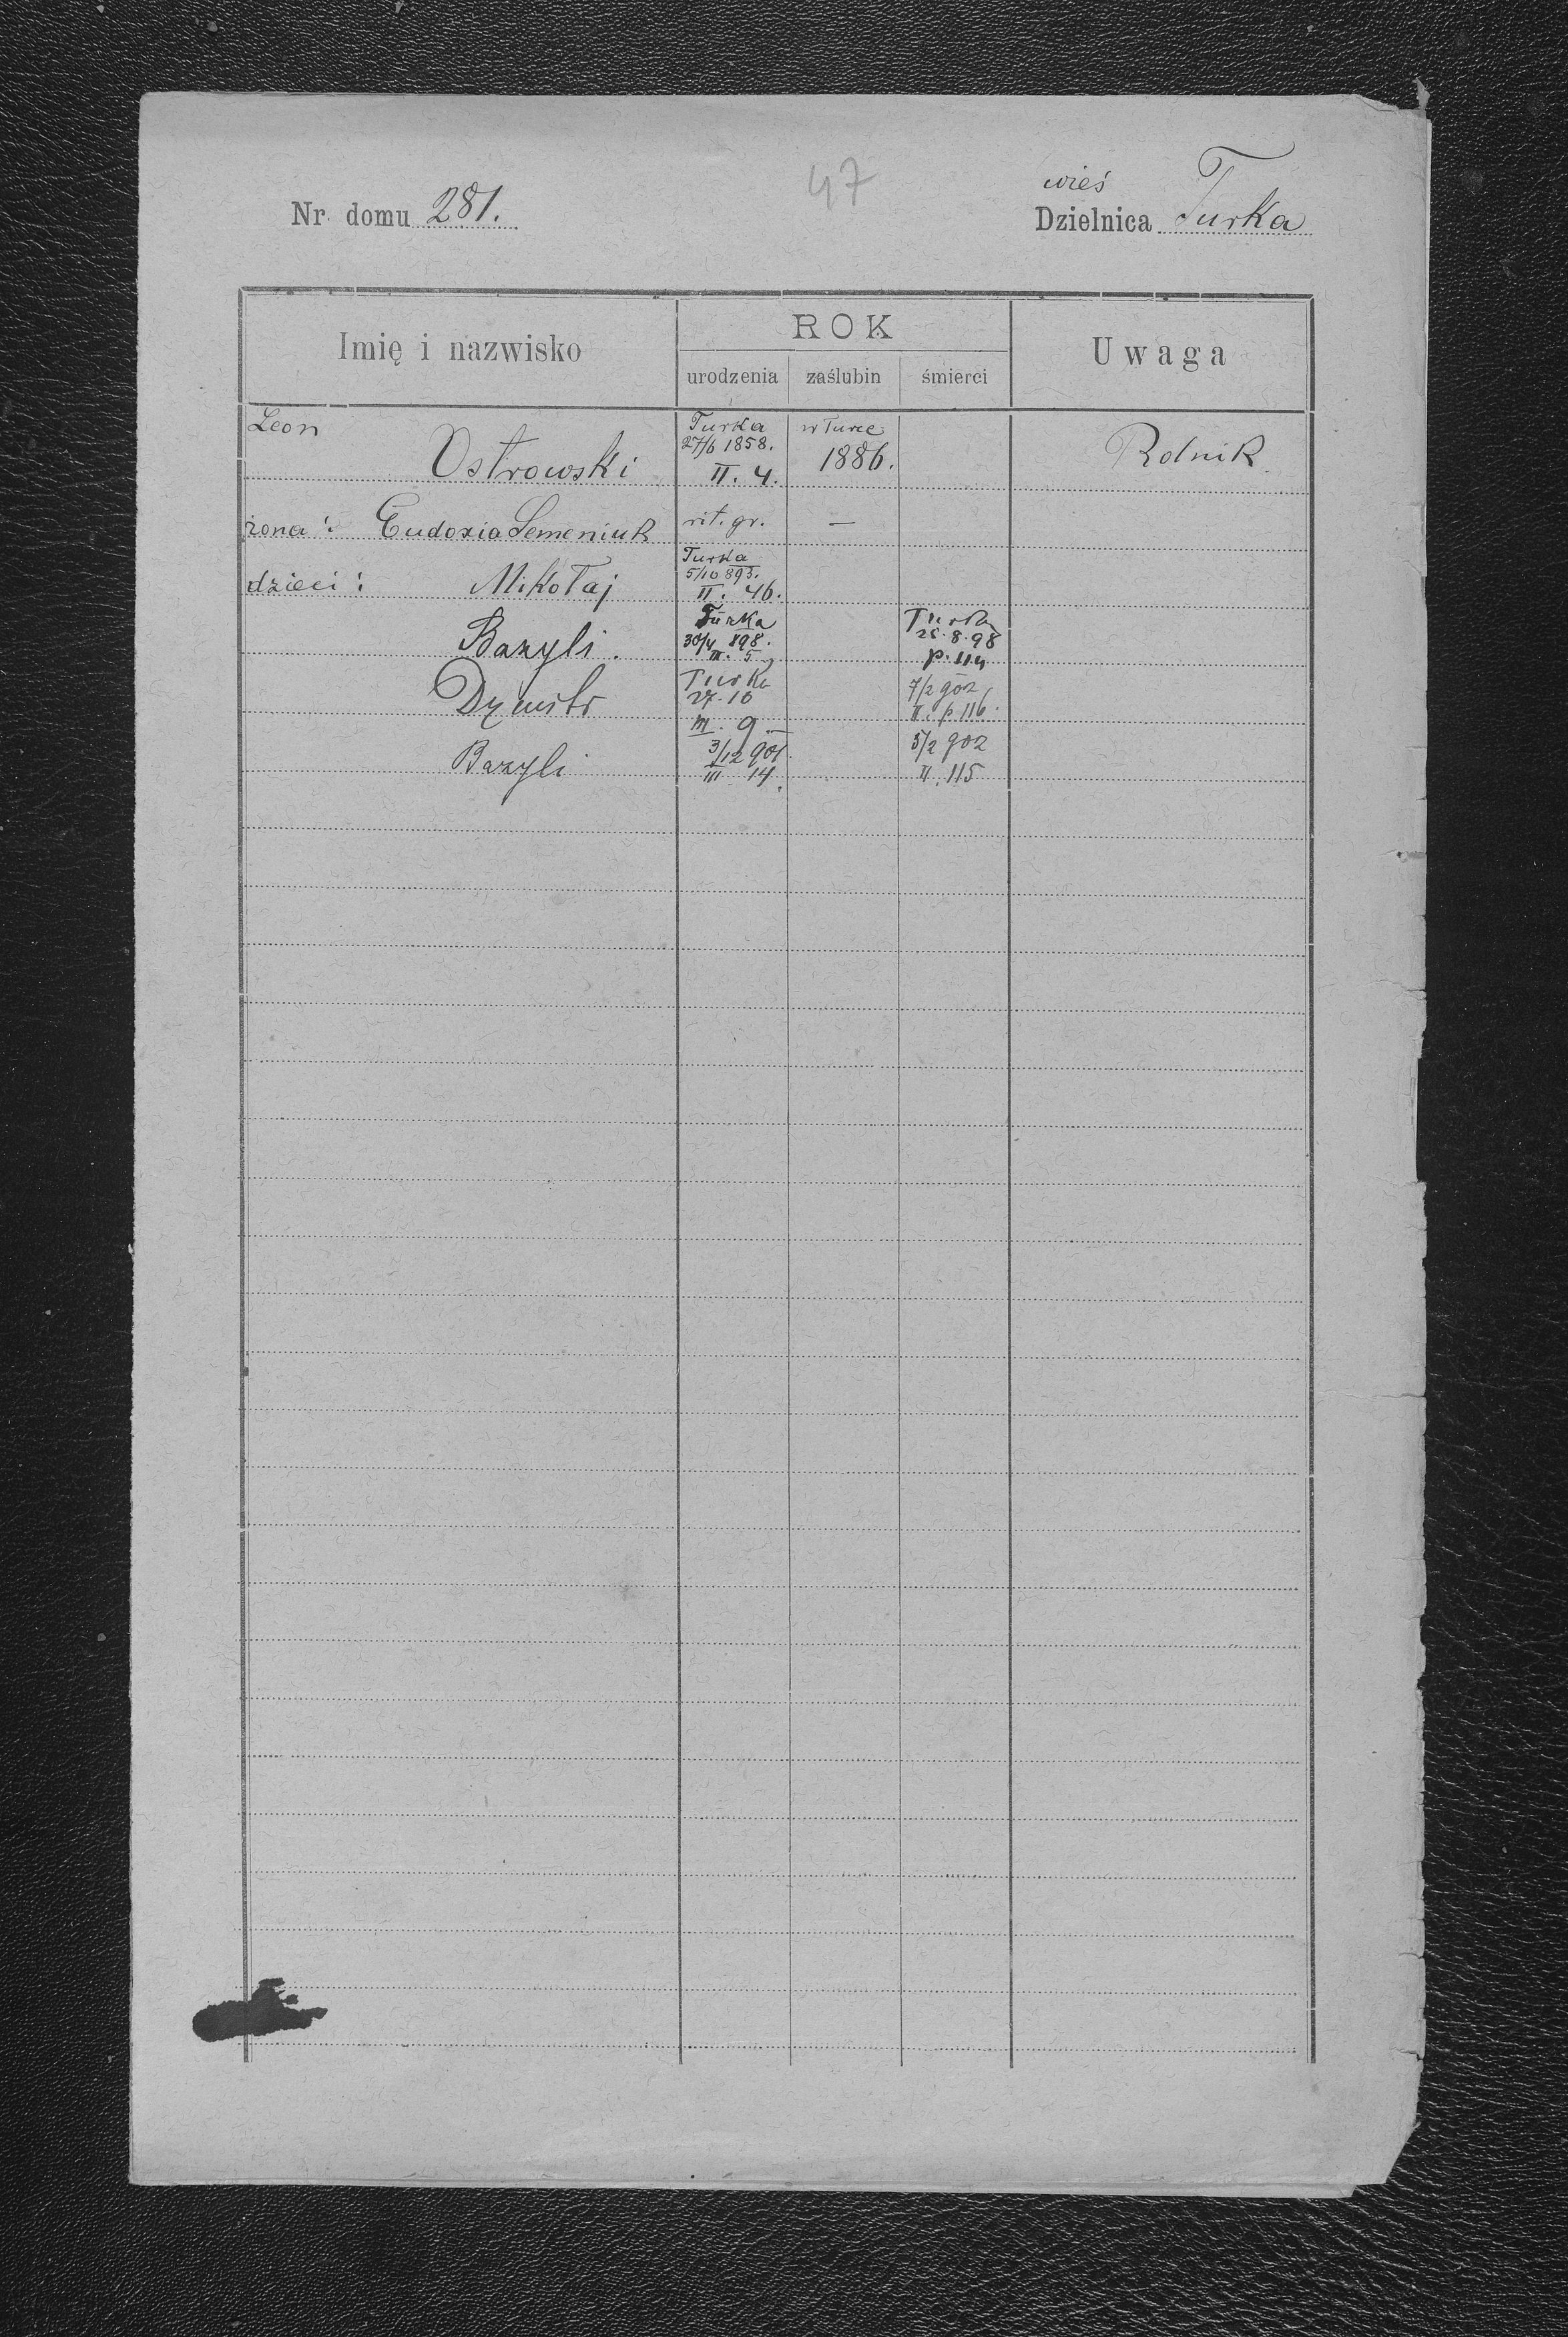 47
wieś
Nr. domu 281. Dzielnica Turka
Imię i nazwisko
ROK
urodzenia zaślubin śmierci
Uwaga
Leon
Ostrowski
Turka
27/6 1858.
II. 4.
w Turce
1886.
Rolnik
żona: Eudoxia Semeniuk rit. gr. —
dzieci: Mikołaj
Turka
5/10 893.
II. 46.
Bazyli.
Turka
30/4 898.
III. 5
Turka
28.8.98
p. 114
Dymitr
Turka
27.10
III. 9
7/2 902
II. p 116.
Bazyli
3/12 901
III 14.
5/2 902
II. 115